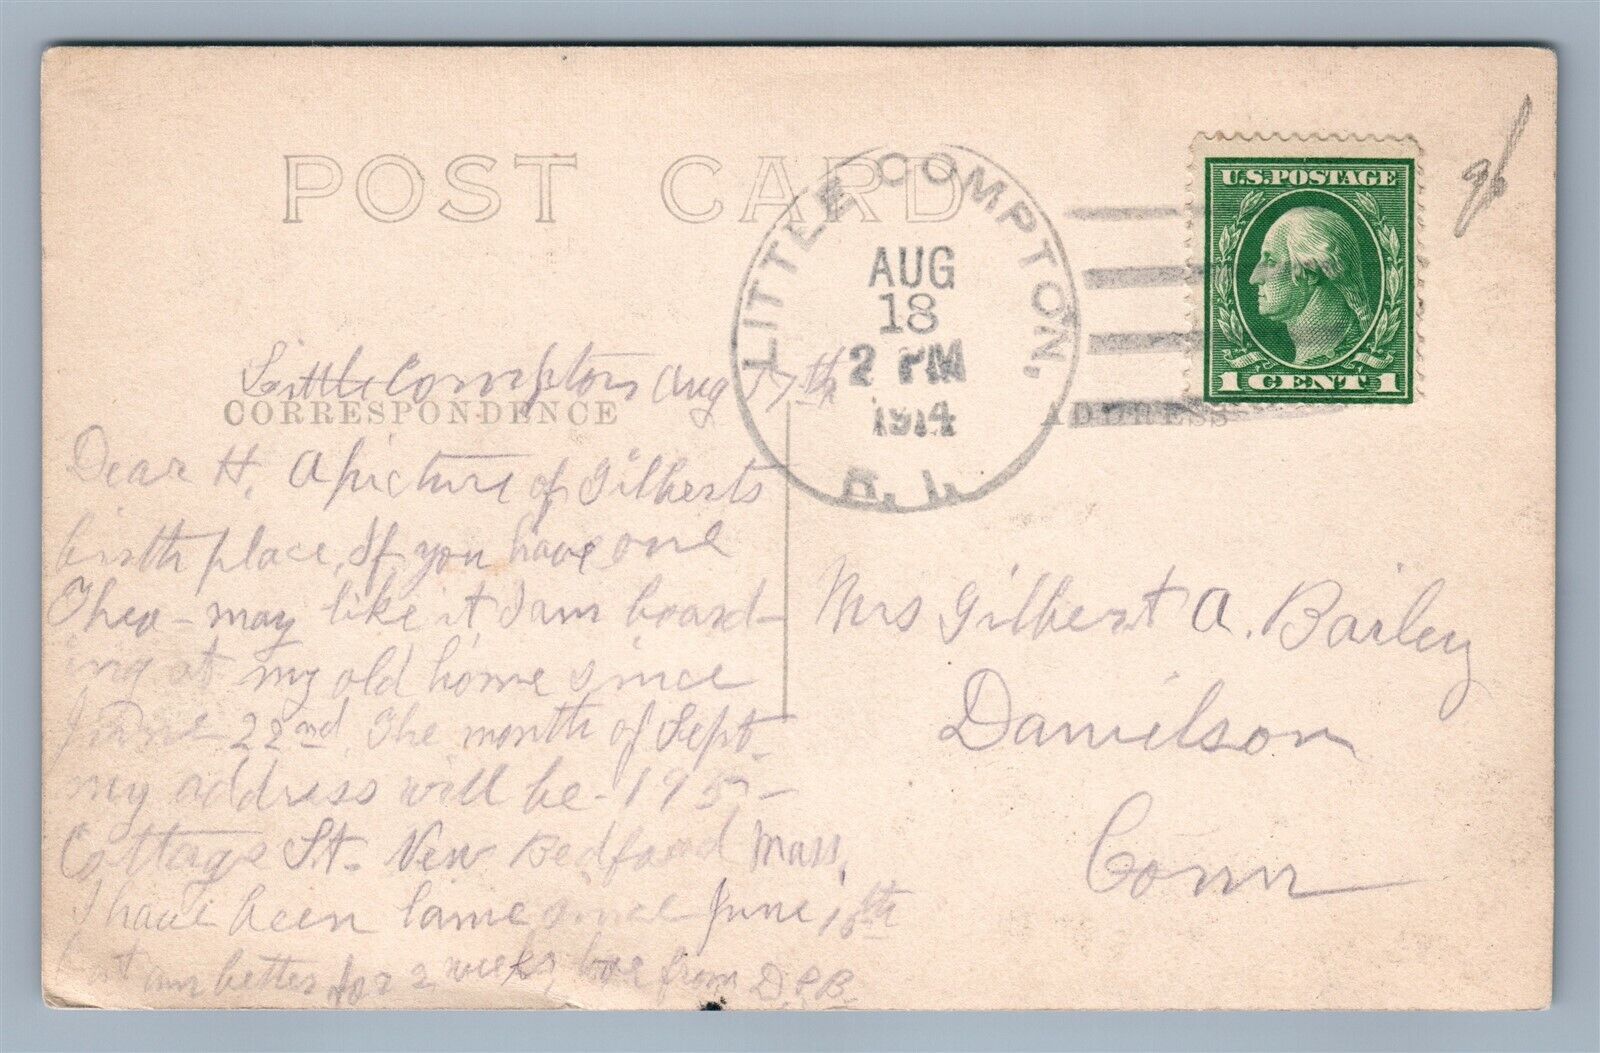 POST CARD
LITTLE COMPTON,
AUG
18
2 PM
1914
R. I.
U.S. POSTAGE
1 CENT 1
Little Compton Aug 17th
CORRESPONDENCE
ADDRESS
Dear H, A picture of Gilberts
birth place, If you have one
Theo - may like it I am board-
ing at my old home since
June 22nd, The month of Sept-
my address will be - 195 -
Cottage St. New Bedford Mass,
I have been lame since June 18th
but am better for 2 weeks, love from D.P.B.
Mrs Gilbert A. Bailey
Danielson
Conn